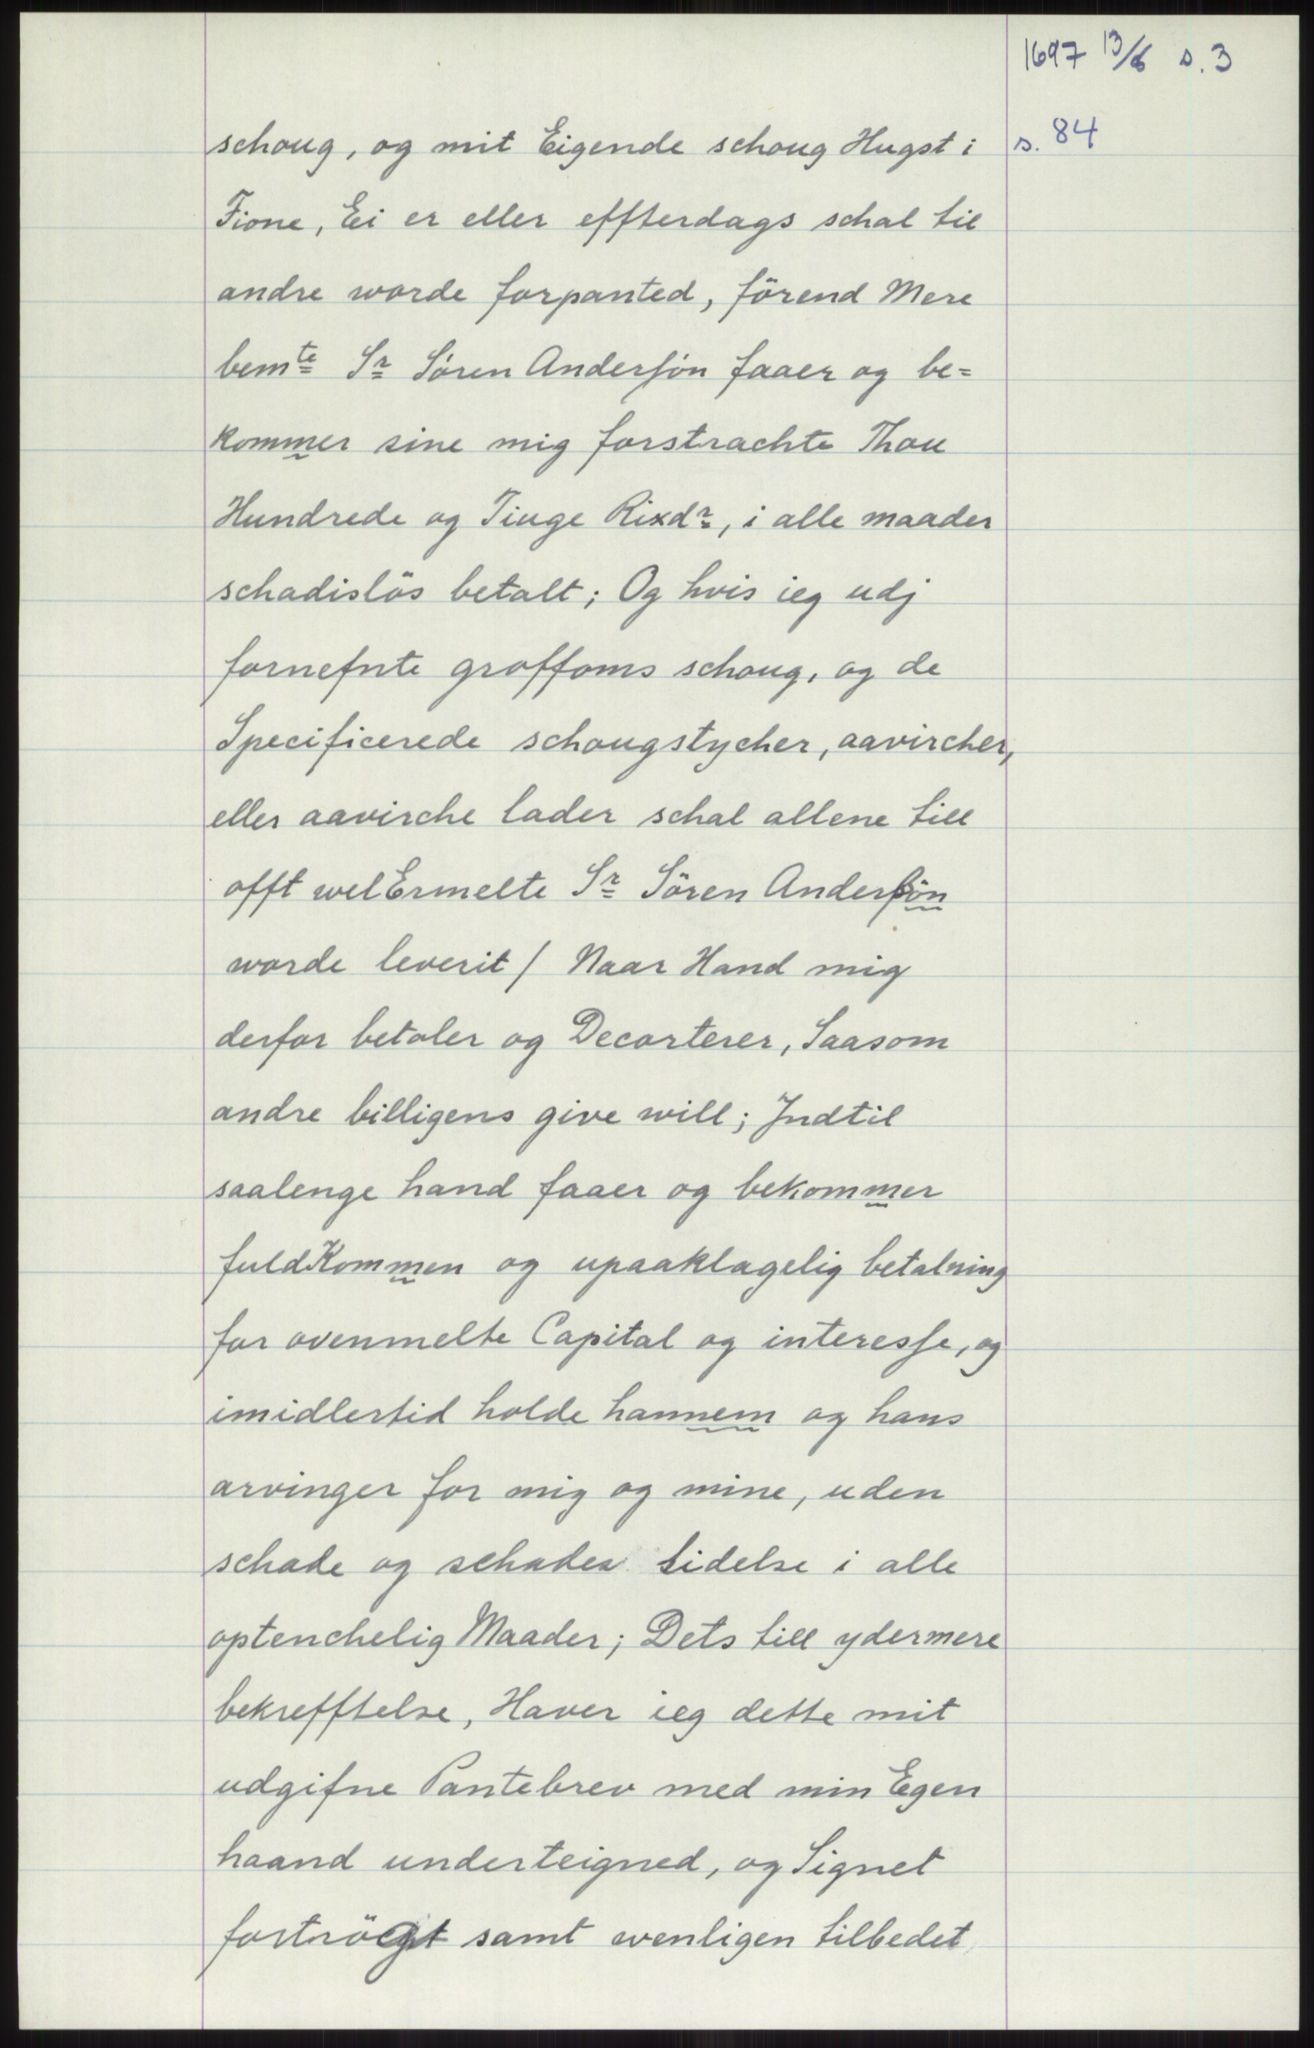 1697 13/6 s. 3
s. 84
schoug, og mit Eigende schoug Hugst i
Fione, Ei er eller effterdags schal til
andre worde forpanted, förend Mere
bemte Sr Sören Anderssön faaer og be=
kommer sine mig forstrachte Thou
Hundrede og Tiuge Rixdr, i alle maader
schadislös betalt; Og hvis ieg udj
fornefnte groffoms schoug, og de
Specificerede schougstycher, aavircher,
eller aavirche lader schal allene till
offt welErmelte Sr Sören Anderssön
worde leverit / Naar Hand mig
derfor betaler og Decorterer, Saasom
andre billigens give will; Indtil
saalenge hand faaer og bekommer
fuldKommen og upaaklagelig betalning
for ovenmelte Capital og interesse, og
imidlertid holde hannem og hans
arvinger for mig og mine, uden
schade og schades lidelse i alle
optenchelig Maader; Dets till ydermere
bekrefftelse, Haver ieg dette mit
udgifne Pantebrev med min Egen
haand underteigned, og Signet
fortröcgt samt wenligen tilbedet